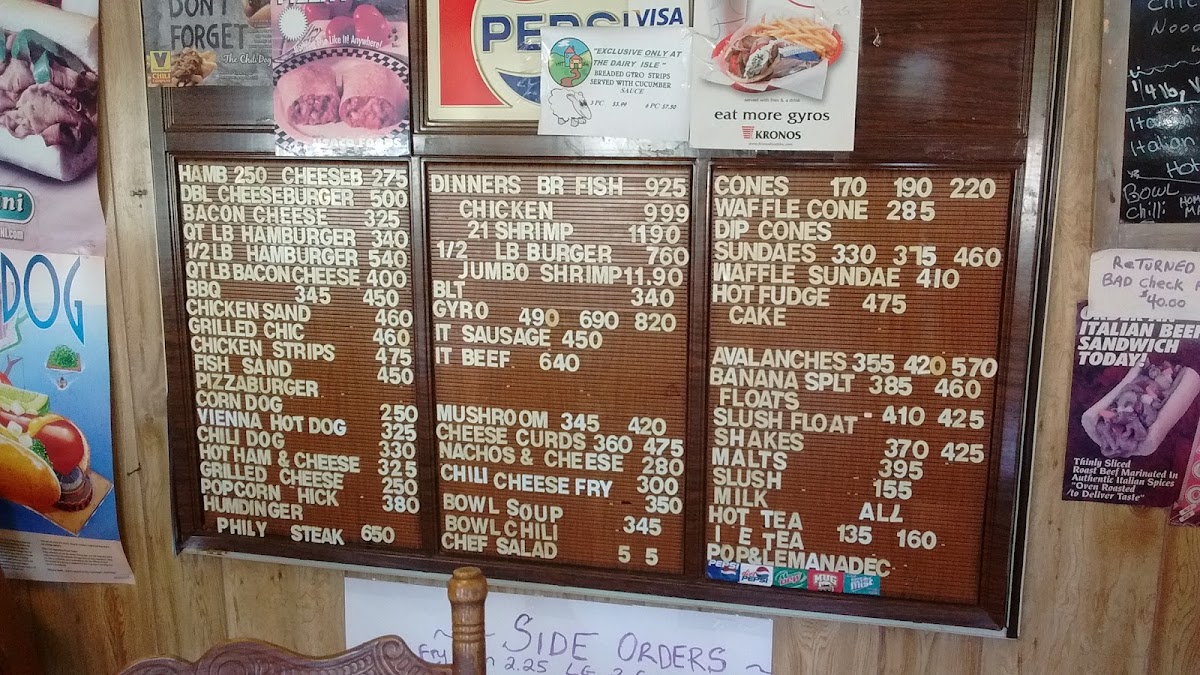 DON'T
FORGET
The Chili Dog
V
CHILI
Like It Anywhere!
PEPSI
VISA
"EXCLUSIVE ONLY AT
THE DAIRY ISLE"
BREADED GYRO STRIPS
SERVED WITH CUCUMBER
SAUCE
3 PC $5.99 6 PC $7.50
eat more gyros
KRONOS
HAMB 250 CHEESEB 275
DBL CHEESEBURGER 500
BACON CHEESE 325
QT LB HAMBURGER 340
1/2 LB HAMBURGER 540
QT LB BACON CHEESE 400
BBQ 345 450
CHICKEN SAND 460
GRILLED CHIC 460
CHICKEN STRIPS 475
FISH SAND 450
PIZZABURGER
CORN DOG 250
VIENNA HOT DOG 325
CHILI DOG 330
HOT HAM & CHEESE 325
GRILLED CHEESE 250
POPCORN HICK 380
HUMDINGER
PHILY STEAK 650
DINNERS BR FISH 925
CHICKEN 999
21 SHRIMP 1190
1/2 LB BURGER 760
JUMBO SHRIMP 11.90
BLT 340
GYRO 490 690 820
IT SAUSAGE 450
IT BEEF 640
MUSHROOM 345 420
CHEESE CURDS 360 475
NACHOS & CHEESE 280
CHILI CHEESE FRY 300
BOWL SOUP 350
BOWL CHILI 345
CHEF SALAD 5 5
CONES 170 190 220
WAFFLE CONE 285
DIP CONES
SUNDAES 330 375 460
WAFFLE SUNDAE 410
HOT FUDGE 475
CAKE
AVALANCHES 355 420 570
BANANA SPLT 385 460
FLOATS
SLUSH FLOAT - 410 425
SHAKES 370 425
MALTS 395
SLUSH 155
MILK ALL
HOT TEA 135 160
I E TEA
POP&LEMANADEC
PEPSI
PEPSI
MUG
Mist
SIDE ORDERS
Fry
2.25
DOG
1/4 lb,
Italian
Italian
Hot
BOWL
Chili
ReTURNED
BAD Check
$40.00
ITALIAN BEEF
SANDWICH
TODAY!
Thinly Sliced
Roast Beef Marinated In
Authentic Italian Spices
"Oven Roasted
to Deliver Taste"